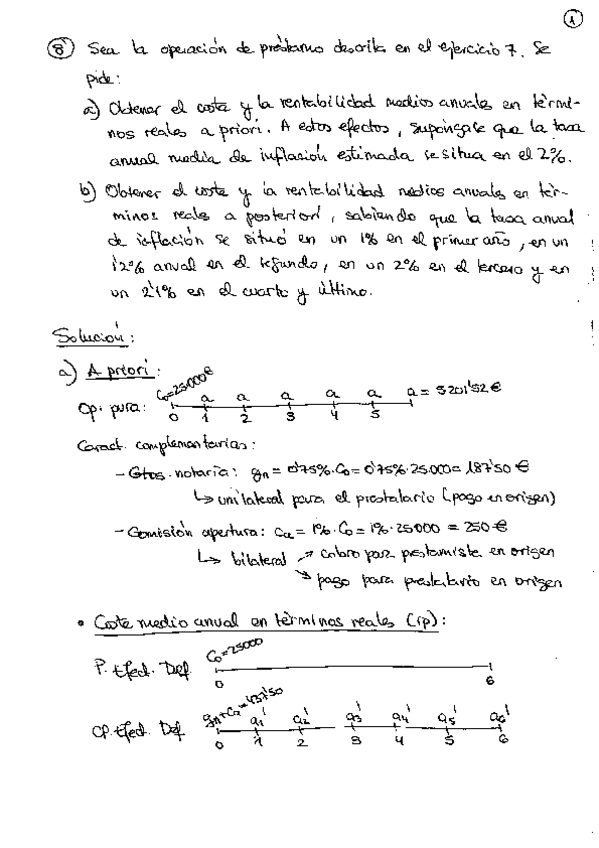 1
8) Sea la operación de préstamo descrita en el ejercicio 7. Se
pide:
a) Obtener el coste y la rentabilidad medios anuales en térmi-
nos reales a priori. A estos efectos, supóngase que la tasa
anual media de inflación estimada se situa en el 2%.
b) Obtener el coste y la rentabilidad medios anuales en tér-
minos reales a posteriori, sabiendo que la tasa anual
de inflación se situó en un 1% en el primer año, en un
1'2% anual en el segundo, en un 2% en el tercero y en
un 2'1% en el cuarto y último.
Solución:
a) A priori:
C₀=25000€ a a a a a a = 5201'52€
Op. pura: 0 1 2 3 4 5
Caract. complementarias:
- Gtos. notaría: gn = 0'75%·C₀ = 0'75%·25.000 = 187'50 €
↳ unilateral para el prestatario (pago en origen)
- Comisión apertura: Ca = 1%·C₀ = 1%·25000 = 250€
↳ bilateral → cobro para prestamista en origen
→ pago para prestatario en origen
• Coste medio anual en términos reales (rp):
C₀=25000
P. Efect. Def. 0 6
gn+Ca=437'50 a₁' a₂' a₃' a₄' a₅' a₆'
CP. Efect. Def. 0 1 2 3 4 5 6